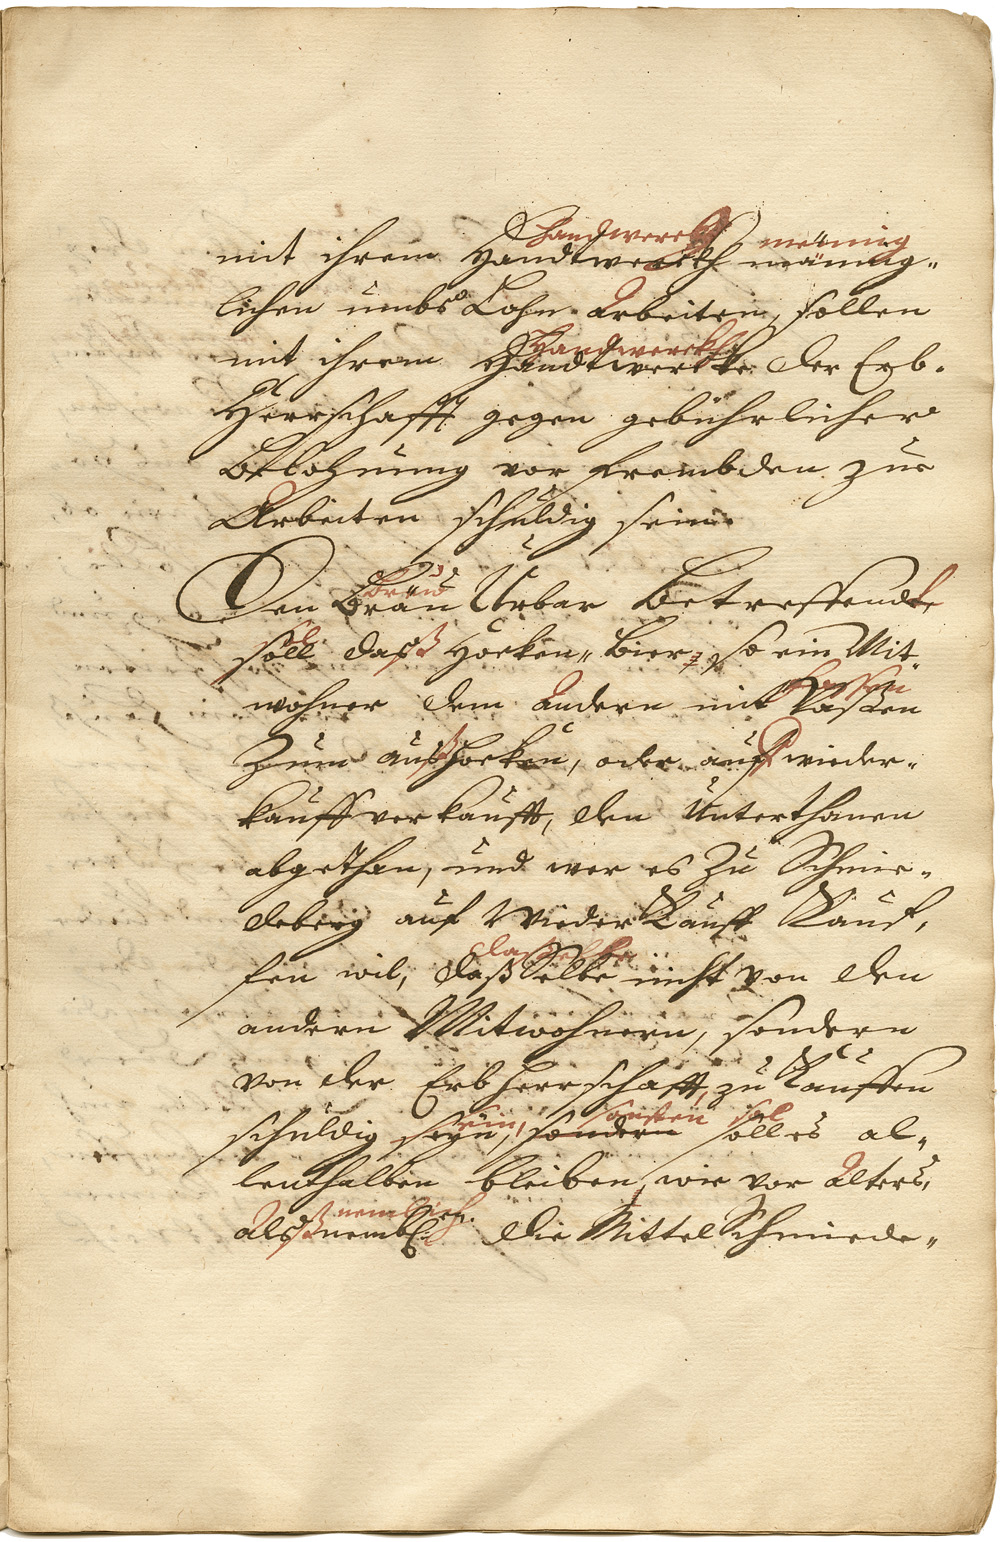 mit ihrem Handtwerckh männig-
Handwerckh mennig
lichen umbs Lohn Arbeiten, sollen
mit ihrem Handtwerckhe der Erb-
Handwerckhe
Herrschafft gegen gebührlicher
Belohnung vor frembden zue
Arbeiten schuldig sein.
Den Bräu Urbar Betreffende
Breu
soll daß Hocken-Bier, so ein Mit-
wohner dem Andern mit Vaßen
Vassen
Zum außhocken, oder auff wieder-
kauff verkaufft, den Unterthanen
abgethan, und wer es Zu Schmie-
deberg auf WiederKauff Kauf-
fen wil, daßSelbe nicht von den
dasselbe
andern Mitwohnern, sondern
von der Erbherrschafft, zu Kauffen
schuldig seyn, sondern soll es al-
sein, sonsten sol
lenthalben bleiben, wie vor Alters,
Alß nembl: die MittelSchmiede-
nemblich